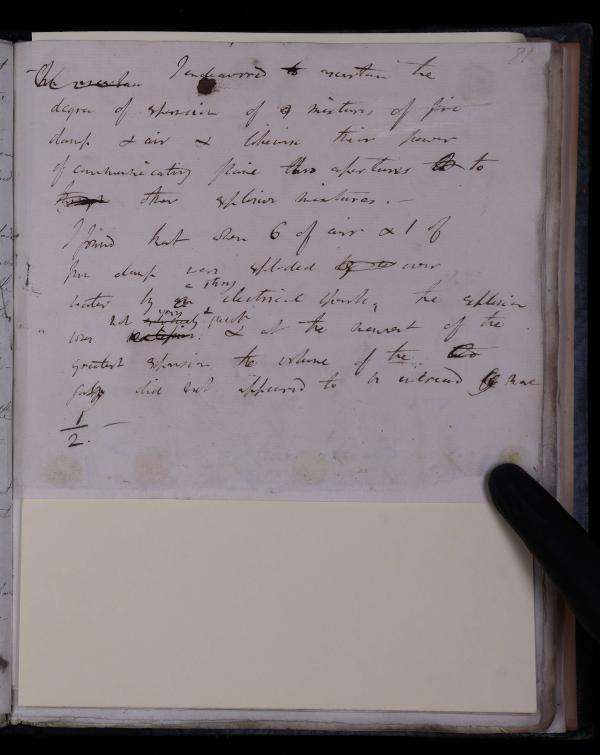 81
I endeavored to ascertain the
degree of expansion of a mixtures of fire
damp & air & likewise their power
of communicating flame thro apertures to
other explosive mixtures. —
I found that when 6 of air & 1 of
fire damp were exploded over
a strong
water by electrical spark, the explosion
not very great
was & at the moment of the
greatest expansion the volume of the
gas did not appeared to be increased more
1
2. —